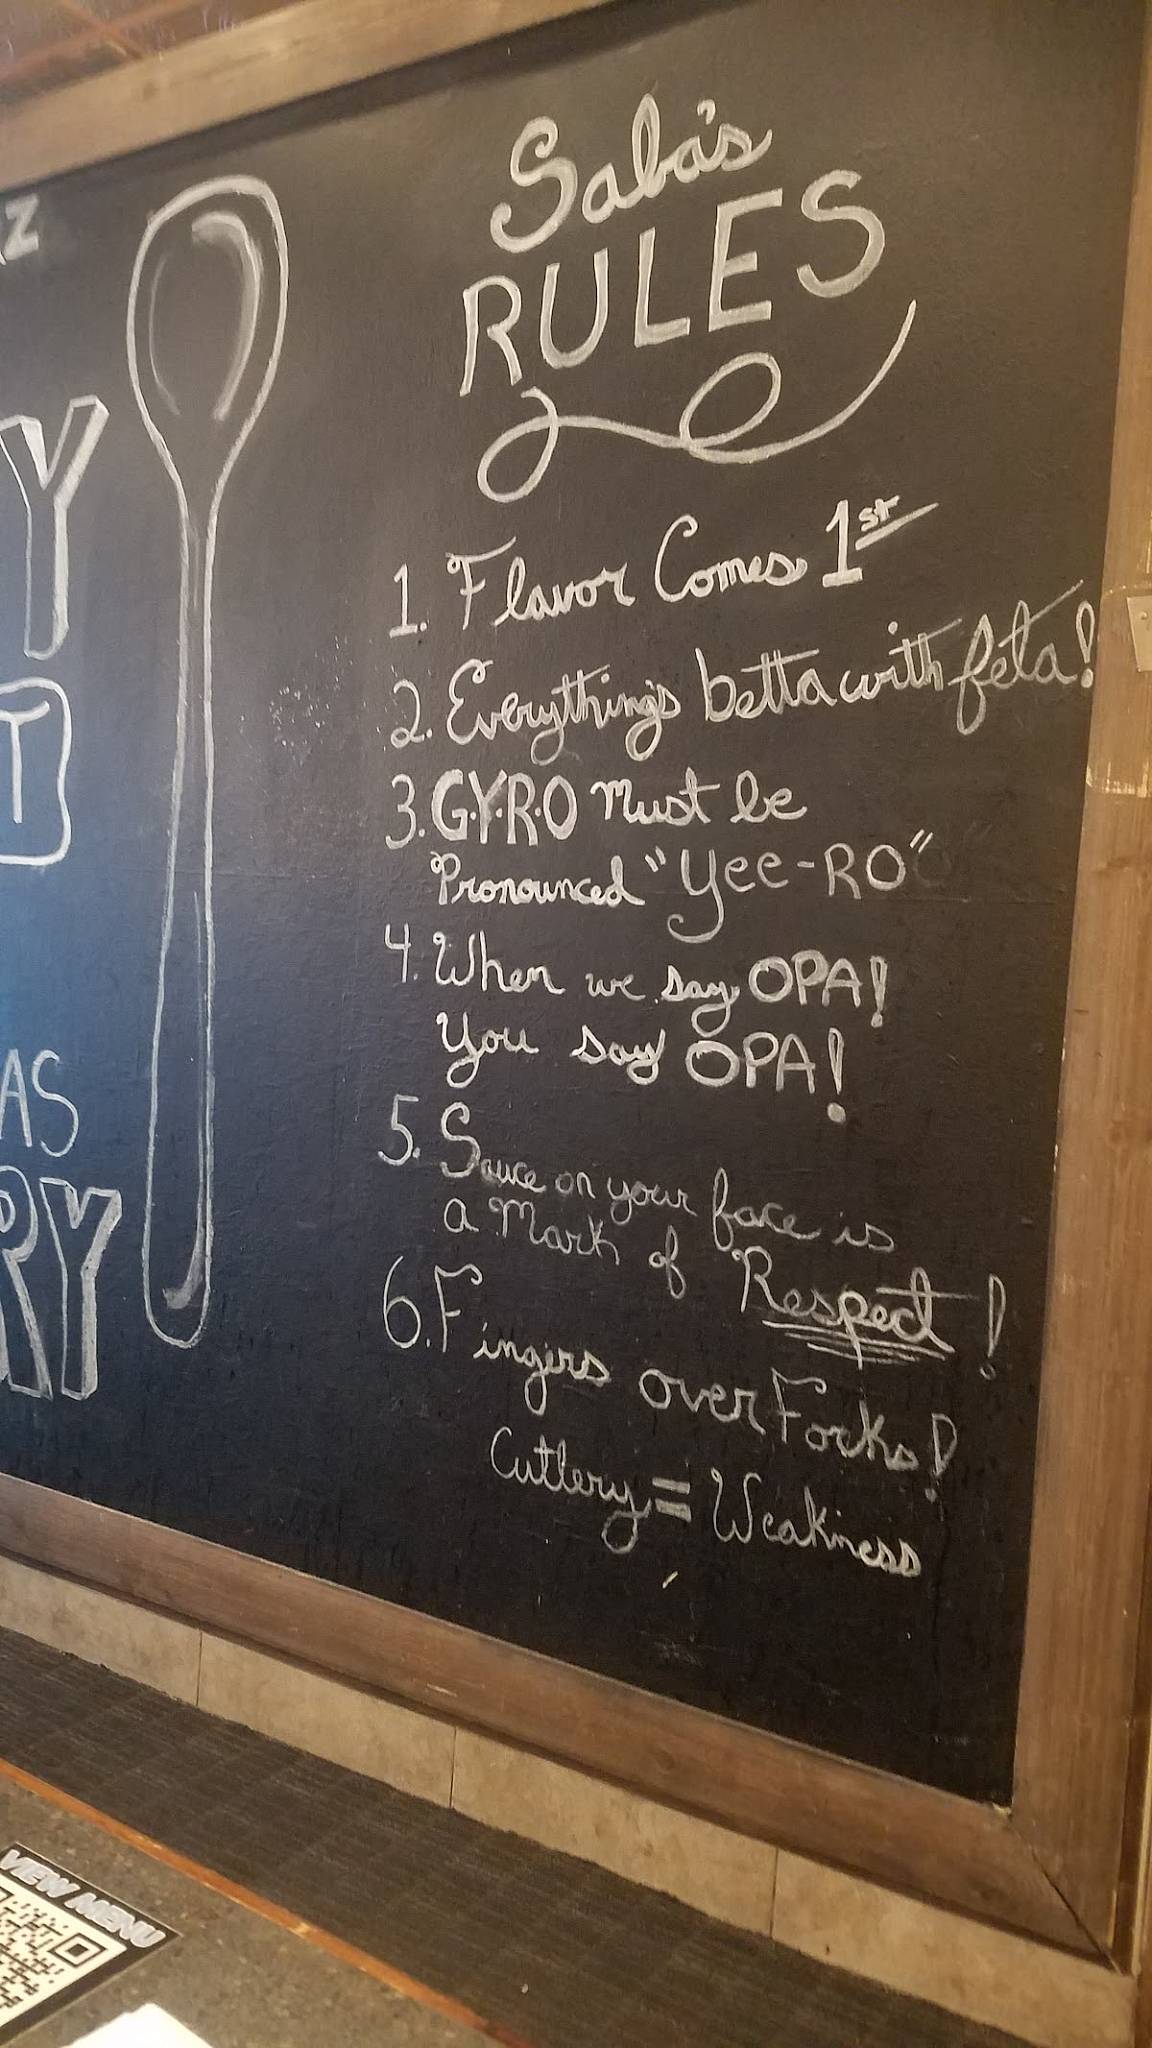 Z
Y
T
AS
RY
Saba's
RULES
1. Flavor Comes 1st
2. Everything's betta with feta!
3. G.Y.R.O must be
Pronounced "Yee-RO"
4. When we say OPA!
You say OPA!
5. Sauce on your face is
a Mark of Respect!
6. Fingers over Forks!
Cutlery = Weakness
VIEW MENU